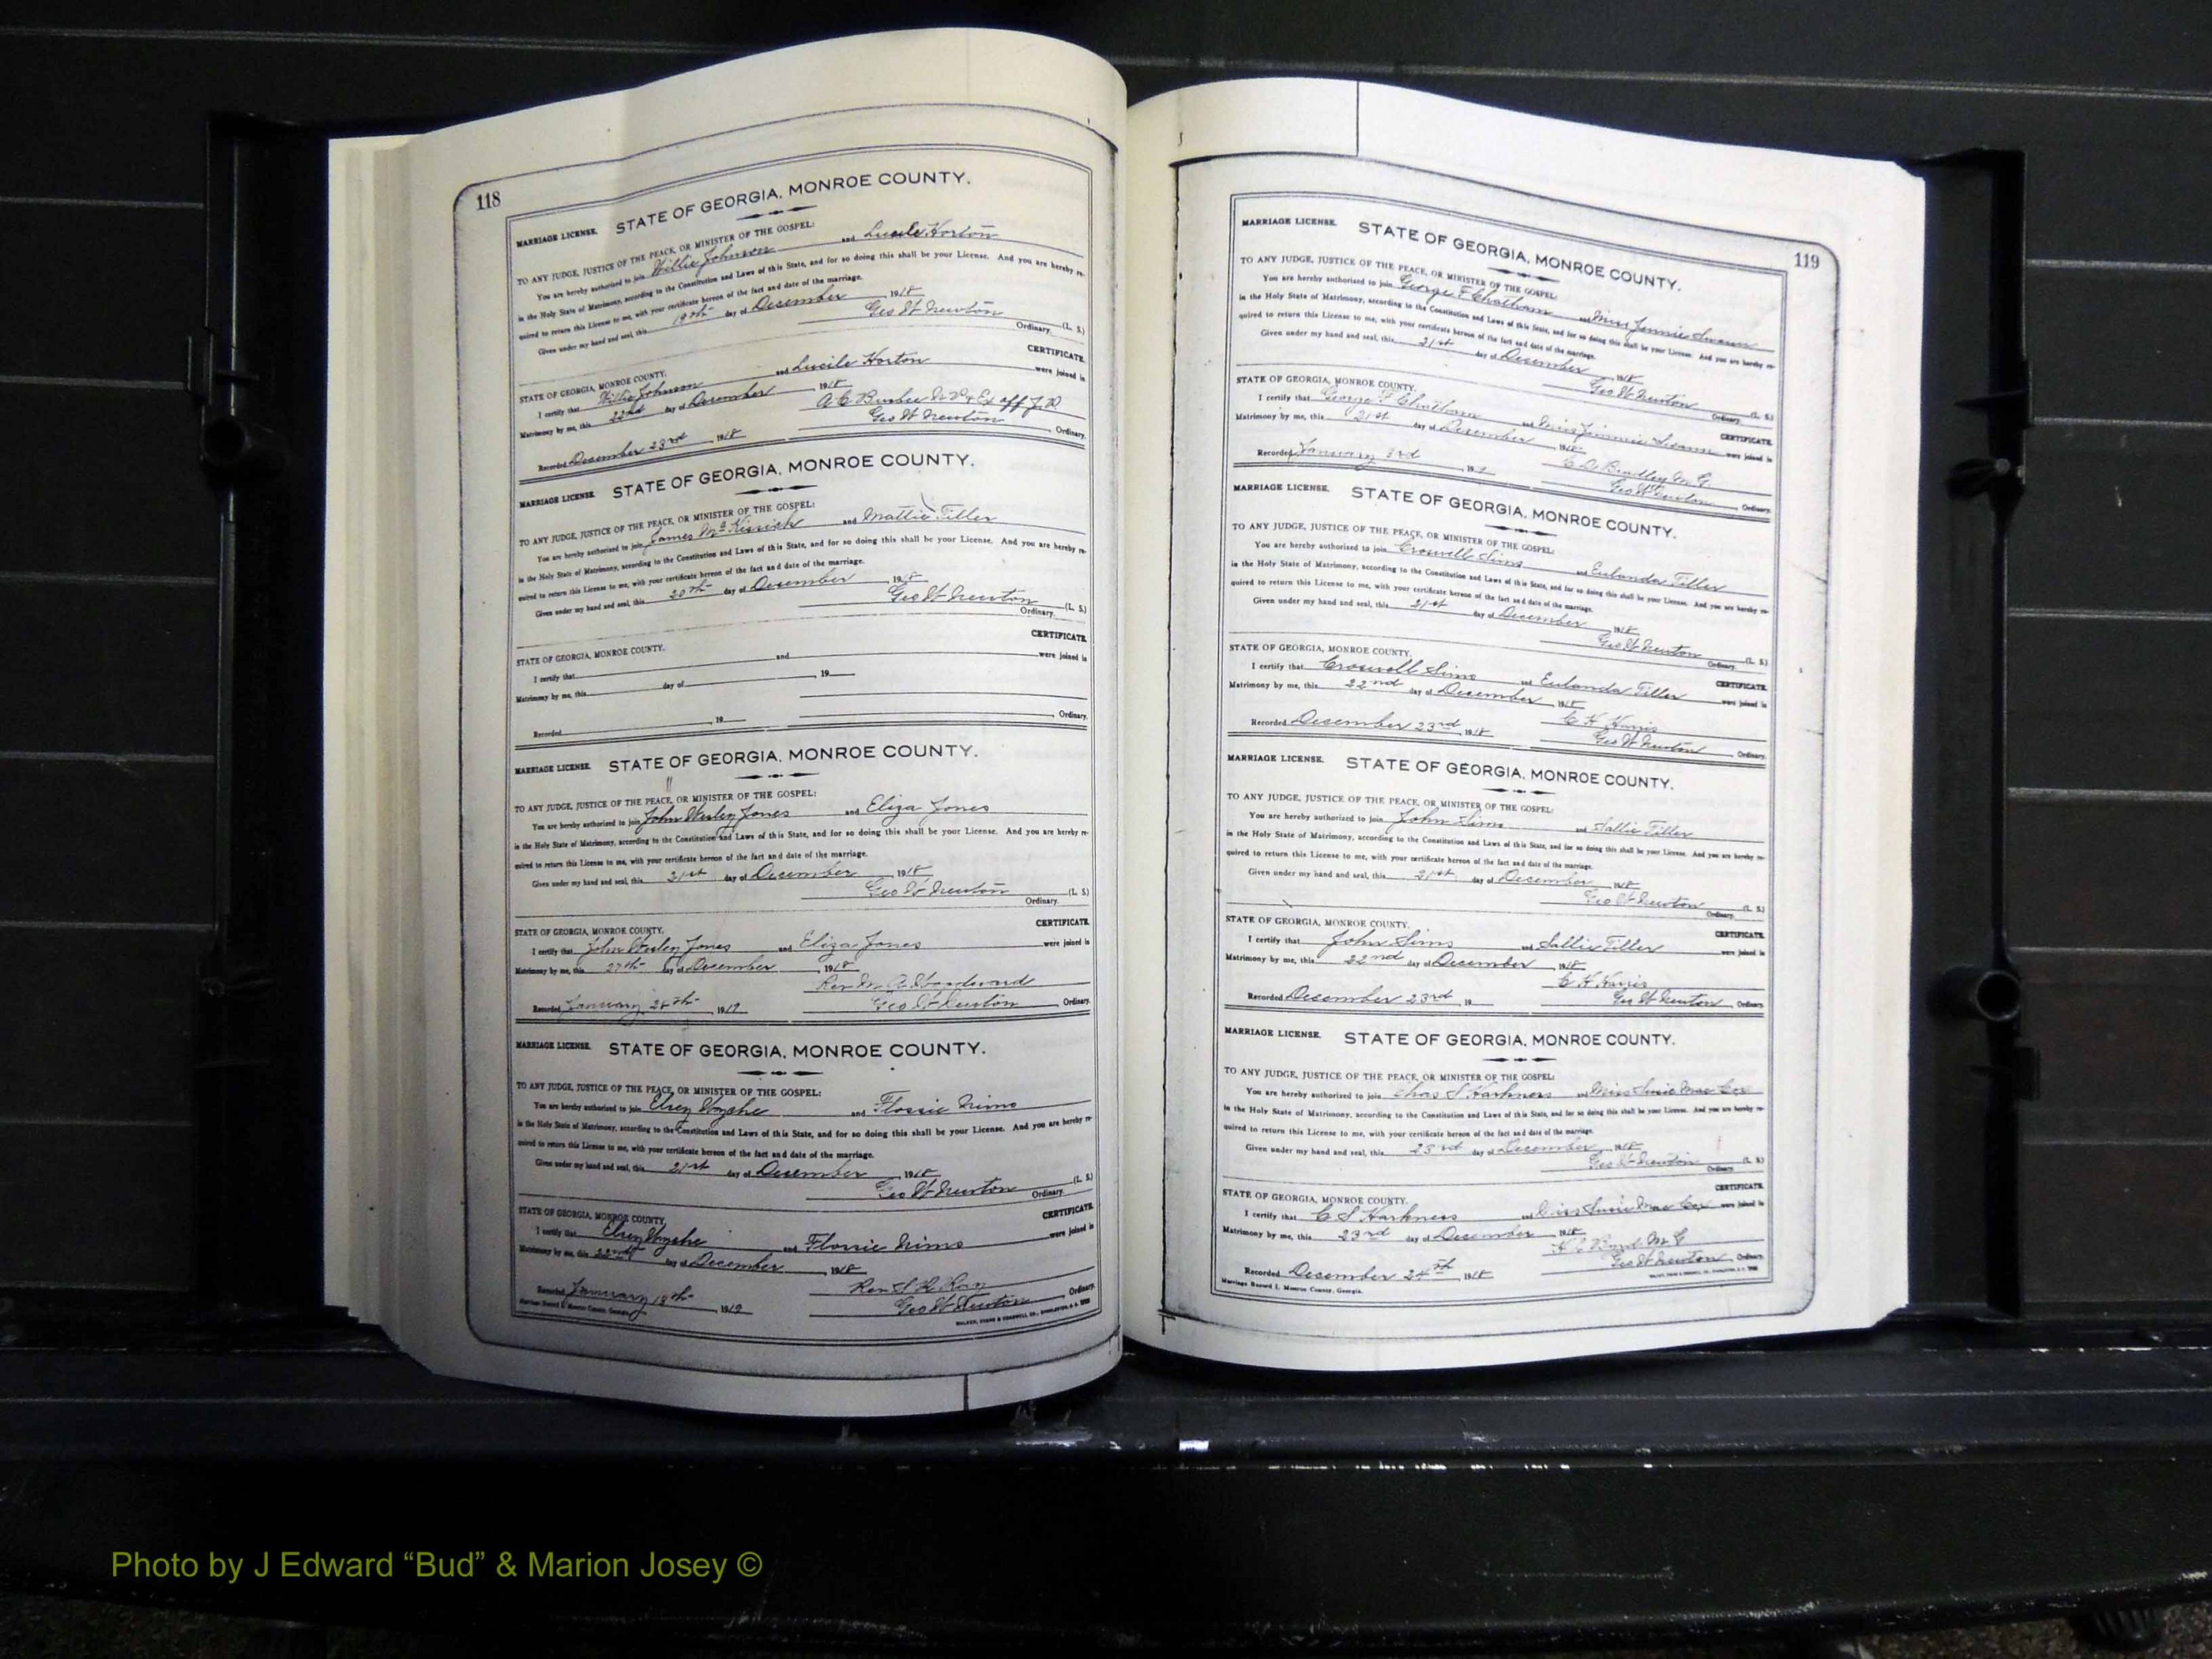 118
MARRIAGE LICENSE. STATE OF GEORGIA, MONROE COUNTY.
TO ANY JUDGE, JUSTICE OF THE PEACE, OR MINISTER OF THE GOSPEL:
You are hereby authorized to join Willie Johnson and Lucile Horton
in the Holy State of Matrimony, according to the Constitution and Laws of this State, and for so doing this shall be your License. And you are hereby re-
quired to return this License to me, with your certificate hereon of the fact and date of the marriage.
Given under my hand and seal, this 19th day of December 1918
Geo W Newton (L. S.)
Ordinary.
CERTIFICATE.
STATE OF GEORGIA, MONROE COUNTY.
I certify that Willie Johnson and Lucile Horton were joined in
Matrimony by me, this 22nd day of December 1918
A C Busbee N P & Ex off J P.
Recorded December 23rd 1918 Geo W Newton Ordinary.
MARRIAGE LICENSE. STATE OF GEORGIA, MONROE COUNTY.
TO ANY JUDGE, JUSTICE OF THE PEACE, OR MINISTER OF THE GOSPEL:
You are hereby authorized to join James and Mattie Tiller
in the Holy State of Matrimony, according to the Constitution and Laws of this State, and for so doing this shall be your License. And you are hereby re-
quired to return this License to me, with your certificate hereon of the fact and date of the marriage.
Given under my hand and seal, this 20th day of December 1918
Geo W Newton (L. S.)
Ordinary.
CERTIFICATE.
STATE OF GEORGIA, MONROE COUNTY.
I certify that and were joined in
Matrimony by me, this day of , 19
Recorded , 19 Ordinary.
MARRIAGE LICENSE. STATE OF GEORGIA, MONROE COUNTY.
TO ANY JUDGE, JUSTICE OF THE PEACE, OR MINISTER OF THE GOSPEL:
You are hereby authorized to join John Wesley Jones and Eliza Jones
in the Holy State of Matrimony, according to the Constitution and Laws of this State, and for so doing this shall be your License. And you are hereby re-
quired to return this License to me, with your certificate hereon of the fact and date of the marriage.
Given under my hand and seal, this 21st day of December 1918
Geo W Newton (L. S.)
Ordinary.
CERTIFICATE.
STATE OF GEORGIA, MONROE COUNTY.
I certify that John Wesley Jones and Eliza Jones were joined in
Matrimony by me, this 27th day of December 1918
Rev M A Woodward
Recorded January 28th 1919 Geo W Newton Ordinary.
MARRIAGE LICENSE. STATE OF GEORGIA, MONROE COUNTY.
TO ANY JUDGE, JUSTICE OF THE PEACE, OR MINISTER OF THE GOSPEL:
You are hereby authorized to join and Flossie Nims
in the Holy State of Matrimony, according to the Constitution and Laws of this State, and for so doing this shall be your License. And you are hereby re-
quired to return this License to me, with your certificate hereon of the fact and date of the marriage.
Given under my hand and seal, this 21st day of December 1918
Geo W Newton (L. S.)
Ordinary.
CERTIFICATE.
STATE OF GEORGIA, MONROE COUNTY.
I certify that and Flossie Nims were joined in
Matrimony by me, this 22nd day of December 1918
Rev S R Ray
Recorded January 18th 1919 Geo W Newton Ordinary.
Marriage Record I. Monroe County, Georgia.
119
MARRIAGE LICENSE. STATE OF GEORGIA, MONROE COUNTY.
TO ANY JUDGE, JUSTICE OF THE PEACE, OR MINISTER OF THE GOSPEL:
You are hereby authorized to join George F Chatham and Miss Jimmie Swann
in the Holy State of Matrimony, according to the Constitution and Laws of this State, and for so doing this shall be your License. And you are hereby re-
quired to return this License to me, with your certificate hereon of the fact and date of the marriage.
Given under my hand and seal, this 21st day of December 1918
Geo W Newton (L. S.)
Ordinary.
CERTIFICATE.
STATE OF GEORGIA, MONROE COUNTY.
I certify that George F Chatham and Miss Jimmie Swann were joined in
Matrimony by me, this 21st day of December 1918
C D Bradley M. G.
Recorded January 3rd 19 Geo W Newton Ordinary.
MARRIAGE LICENSE. STATE OF GEORGIA, MONROE COUNTY.
TO ANY JUDGE, JUSTICE OF THE PEACE, OR MINISTER OF THE GOSPEL:
You are hereby authorized to join Croswell Sims and Eulanda Tiller
in the Holy State of Matrimony, according to the Constitution and Laws of this State, and for so doing this shall be your License. And you are hereby re-
quired to return this License to me, with your certificate hereon of the fact and date of the marriage.
Given under my hand and seal, this 21st day of December 1918
Geo W Newton (L. S.)
Ordinary.
CERTIFICATE.
STATE OF GEORGIA, MONROE COUNTY.
I certify that Croswell Sims and Eulanda Tiller were joined in
Matrimony by me, this 22nd day of December 1918
C H Harris
Recorded December 23rd 1918 Geo W Newton Ordinary.
MARRIAGE LICENSE. STATE OF GEORGIA, MONROE COUNTY.
TO ANY JUDGE, JUSTICE OF THE PEACE, OR MINISTER OF THE GOSPEL:
You are hereby authorized to join John Sims and Sallie Tiller
in the Holy State of Matrimony, according to the Constitution and Laws of this State, and for so doing this shall be your License. And you are hereby re-
quired to return this License to me, with your certificate hereon of the fact and date of the marriage.
Given under my hand and seal, this 21st day of December 1918
Geo W Newton (L. S.)
Ordinary.
CERTIFICATE.
STATE OF GEORGIA, MONROE COUNTY.
I certify that John Sims and Sallie Tiller were joined in
Matrimony by me, this 22nd day of December 1918
C H Harris
Recorded December 23rd 19 Geo W Newton Ordinary.
MARRIAGE LICENSE. STATE OF GEORGIA, MONROE COUNTY.
TO ANY JUDGE, JUSTICE OF THE PEACE, OR MINISTER OF THE GOSPEL:
You are hereby authorized to join Chas S Harkness and Miss Susie Mae Cox
in the Holy State of Matrimony, according to the Constitution and Laws of this State, and for so doing this shall be your License. And you are hereby re-
quired to return this License to me, with your certificate hereon of the fact and date of the marriage.
Given under my hand and seal, this 23rd day of December 1918
Geo W Newton (L. S.)
Ordinary.
CERTIFICATE.
STATE OF GEORGIA, MONROE COUNTY.
I certify that C S Harkness and Miss Susie Mae Cox were joined in
Matrimony by me, this 23rd day of December 1918
M G
Recorded December 24th 1918 Geo W Newton Ordinary.
Marriage Record I. Monroe County, Georgia.
Photo by J Edward “Bud” & Marion Josey ©